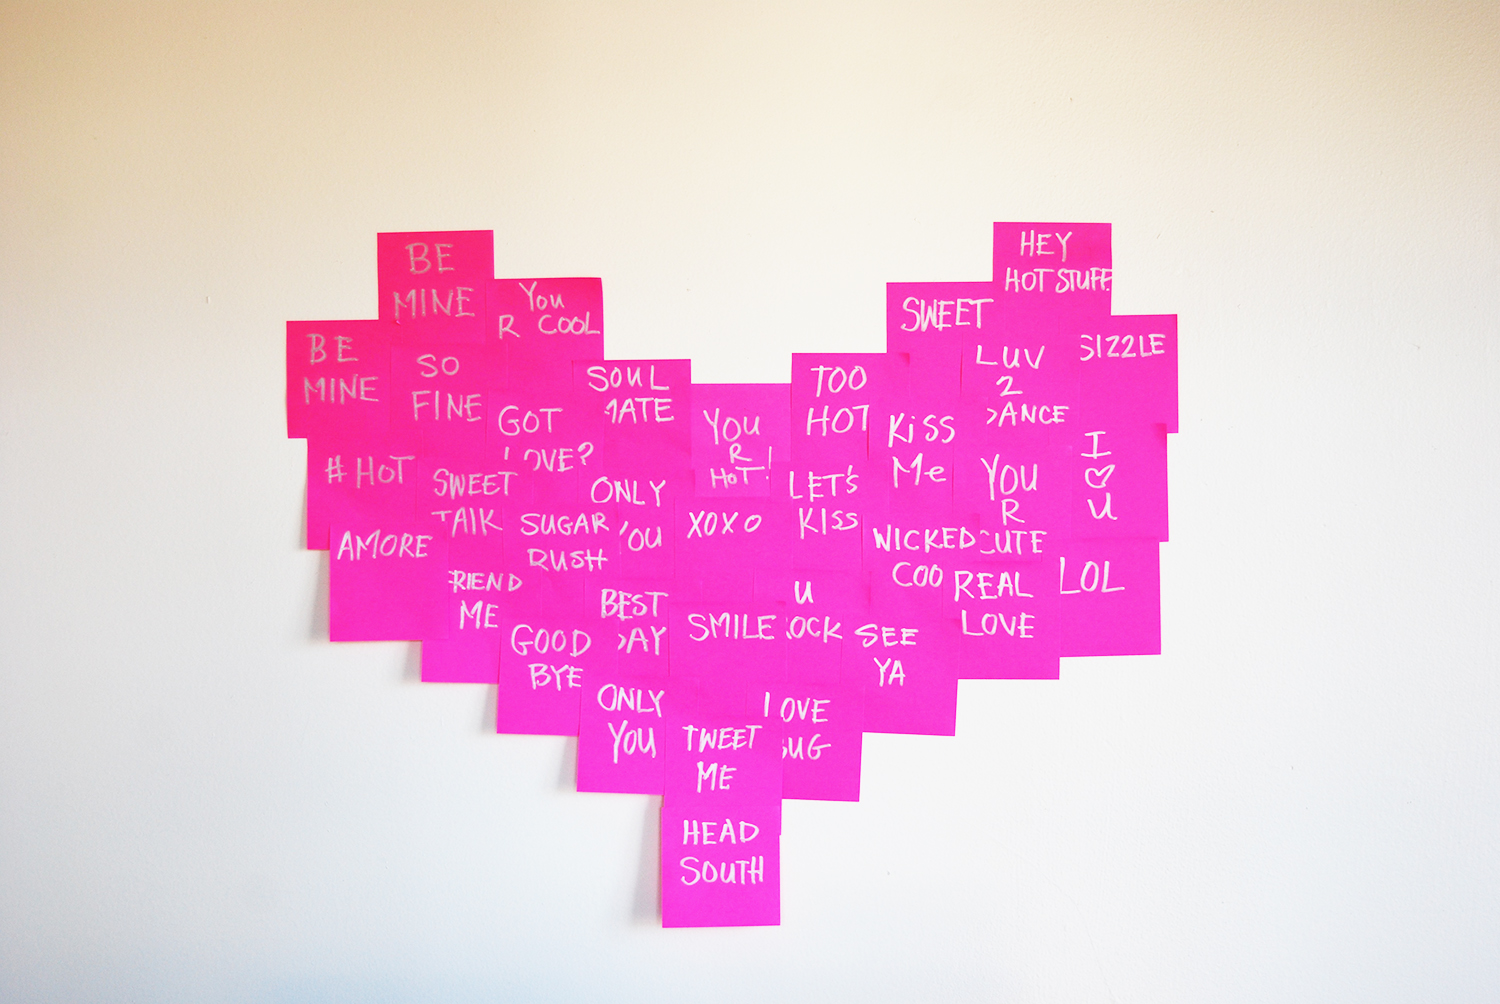 BE
MINE
HEY
HOT STUFF
You
R COOL
SWEET
BE
MINE
SO
FINE
SOUL
MATE
TOO
HOT
LUV
2
DANCE
SIZZLE
GOT
LOVE?
YOU
R
HOT!
KiSS
Me
I
♡
U
#HOT
SWEET
TALK
ONLY
YOU
LET'S
KISS
YOU
R
CUTE
AMORE
SUGAR
RUSH
XOXO
WICKED
COO
LOL
FRIEND
ME
BEST
DAY
U
ROCK
REAL
LOVE
GOOD
BYE
SMILE
SEE
YA
ONLY
YOU
LOVE
BUG
TWEET
ME
HEAD
SOUTH